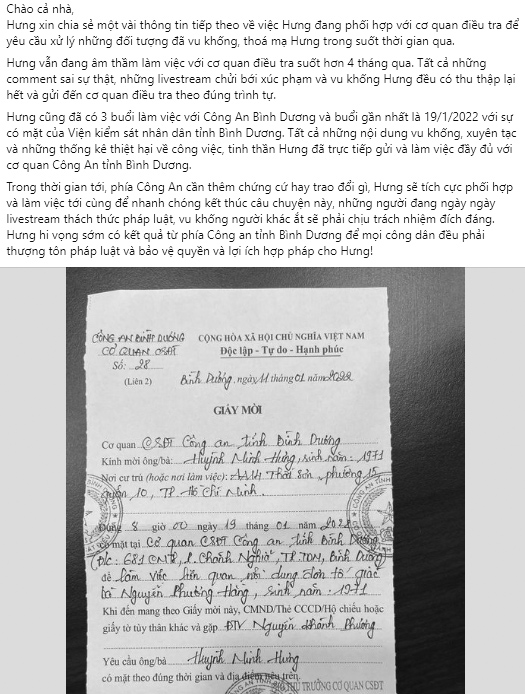 Chào cả nhà,
Hưng xin chia sẻ một vài thông tin tiếp theo về việc Hưng đang phối hợp với cơ quan điều tra để
yêu cầu xử lý những đối tượng đã vu khống, thoá mạ Hưng trong suốt thời gian qua.
Hưng vẫn đang âm thầm làm việc với cơ quan điều tra suốt hơn 4 tháng qua. Tất cả những
comment sai sự thật, những livestream chửi bới xúc phạm và vu khống Hưng đều có thu thập lại
hết và gửi đến cơ quan điều tra theo đúng trình tự.
Hưng cũng đã có 3 buổi làm việc với Công An Bình Dương và buổi gần nhất là 19/1/2022 với sự
có mặt của Viện kiểm sát nhân dân tỉnh Bình Dương. Tất cả những nội dung vu khống, xuyên tạc
và những thống kê thiệt hại về công việc, tinh thần Hưng đã trực tiếp gửi và làm việc đầy đủ với
cơ quan Công An tỉnh Bình Dương.
Trong thời gian tới, phía Công An cần thêm chứng cứ hay trao đổi gì, Hưng sẽ tích cực phối hợp
và làm việc tới cùng để nhanh chóng kết thúc câu chuyện này, những người đang ngày ngày
livestream thách thức pháp luật, vu khống người khác ắt sẽ phải chịu trách nhiệm đích đáng.
Hưng hi vọng sớm có kết quả từ phía Công an tỉnh Bình Dương để mọi công dân đều phải
thượng tôn pháp luật và bảo vệ quyền và lợi ích hợp pháp cho Hưng!
CÔNG AN BÌNH DƯƠNG CỘNG HÒA XÃ HỘI CHỦ NGHĨA VIỆT NAM
CƠ QUAN CSĐT Độc lập - Tự do - Hạnh phúc
Số: 28
(Liên 2) Bình Dương, ngày 11 tháng 01 năm 2022
GIẤY MỜI
Cơ quan CSĐT Công an tỉnh Bình Dương
Kính mời ông/bà: Huỳnh Minh Hưng, sinh năm: 1971
Nơi cư trú (hoặc nơi làm việc): Thất Sơn, phường 15,
Quận 10, TP. Hồ Chí Minh.
Đúng 8 giờ 00 ngày 19 tháng 01 năm 2022
có mặt tại Cơ quan CSĐT Công an tỉnh Bình Dương
(Đ/c: 681 CMT8, P. Chánh Nghĩa, TP. TDM, Bình Dương)
để làm việc liên quan nội dung đơn tố giác
bà Nguyễn Phương Hằng, sinh năm: 1971
Khi đến mang theo Giấy mời này, CMND/Thẻ CCCD/Hộ chiếu hoặc
giấy tờ tùy thân khác và gặp ĐTV Nguyễn Khánh Phương
Yêu cầu ông/bà Huỳnh Minh Hưng
có mặt theo đúng thời gian và địa điểm nêu trên.
THỦ TRƯỞNG CƠ QUAN CSĐT